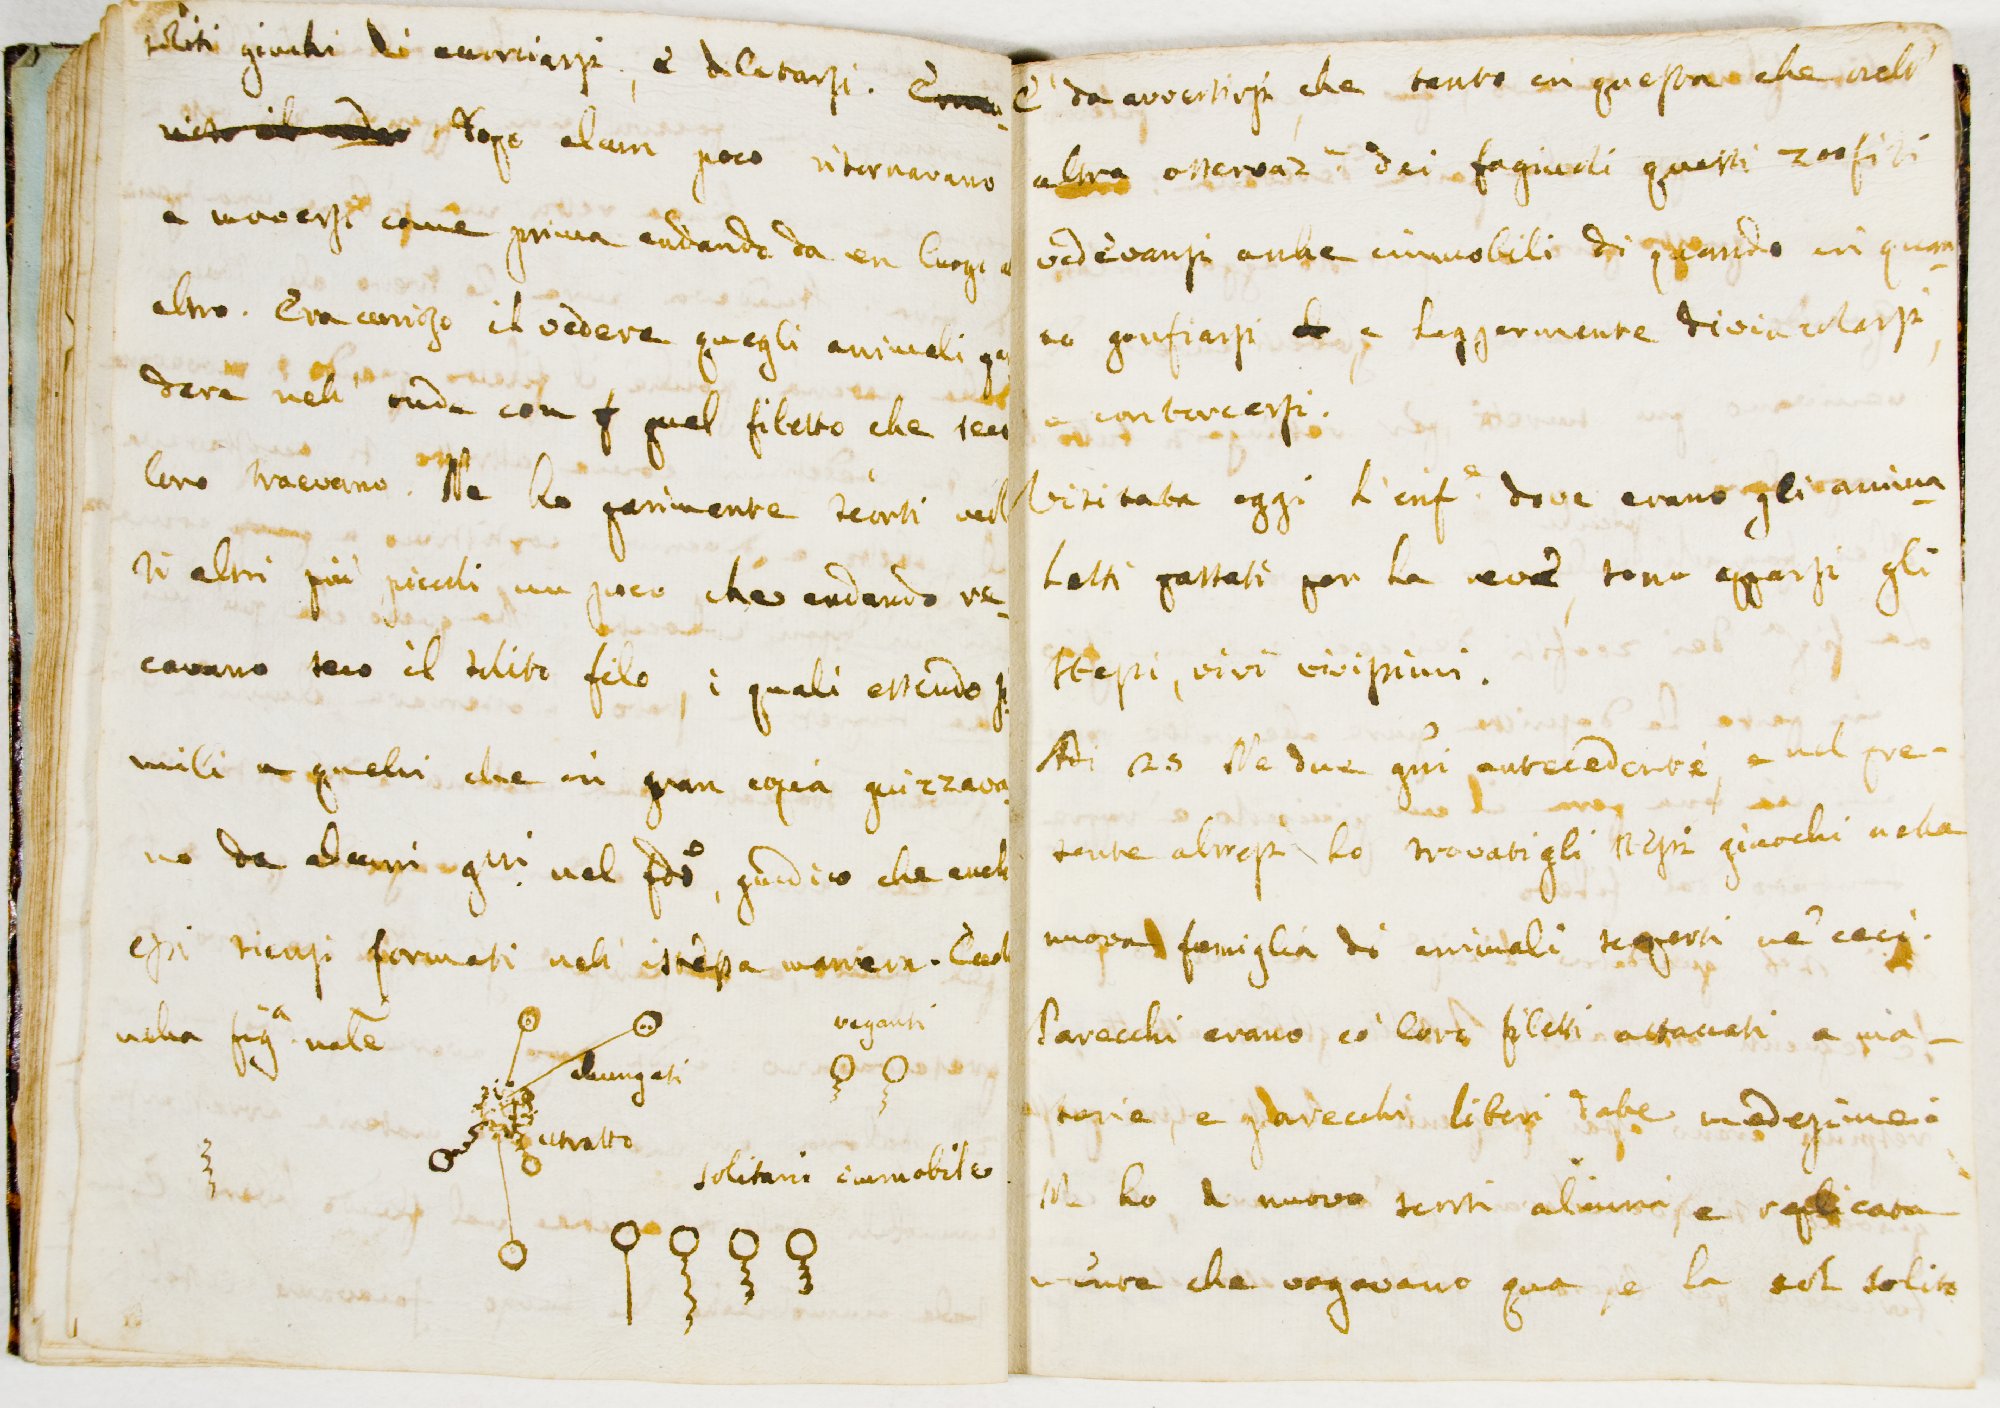 soliti giuchi di accorciarsi, e dilatarsi.
Dopo alcun poco ritornavano
a moversi come prima andando da un luogo a
altro. Era curioso il vedere quegli animali
dare nell' onda con quel filetto che seco
loro traevano. Ne ho parimente scorti
ti altri più piccoli un poco che andando re-
cavano seco il solito filo, i quali essendo si
mili a quelli che in gran copia guizzava
no da alcuni gni. nel fdo, giudico che anch
essi siensi formati nell' istessa maniera.
nella figa. nale
alungati
vaganti
contratto
solitarii immobile
E' da avvertirsi, che tanto in questa che nell'
altra osservaz.ne dei fagiuoli questi zoofiti
vedevansi anche immobili di quando in quan-
do gonfiarsi, e leggermente divincolarsi,
e contorcersi.
Visitata oggi l'inf.e dove erano gli anima-
letti passati per la neve, sono apparsi gli
stessi, vivi vivissimi.
Adi 25 Ne due gni antecedenti, e nel pre-
sente altresi ho trovati gli stessi giuochi nella
nuova famiglia di animali scoperti ne' ceci.
Parecchi erano co' loro filetti attaccati a ma-
terie, e parecchi liberi dalle medesime:
Ne ho di nuovo scorti alcuni, e replicata
mente che vagavano qua e la col solito